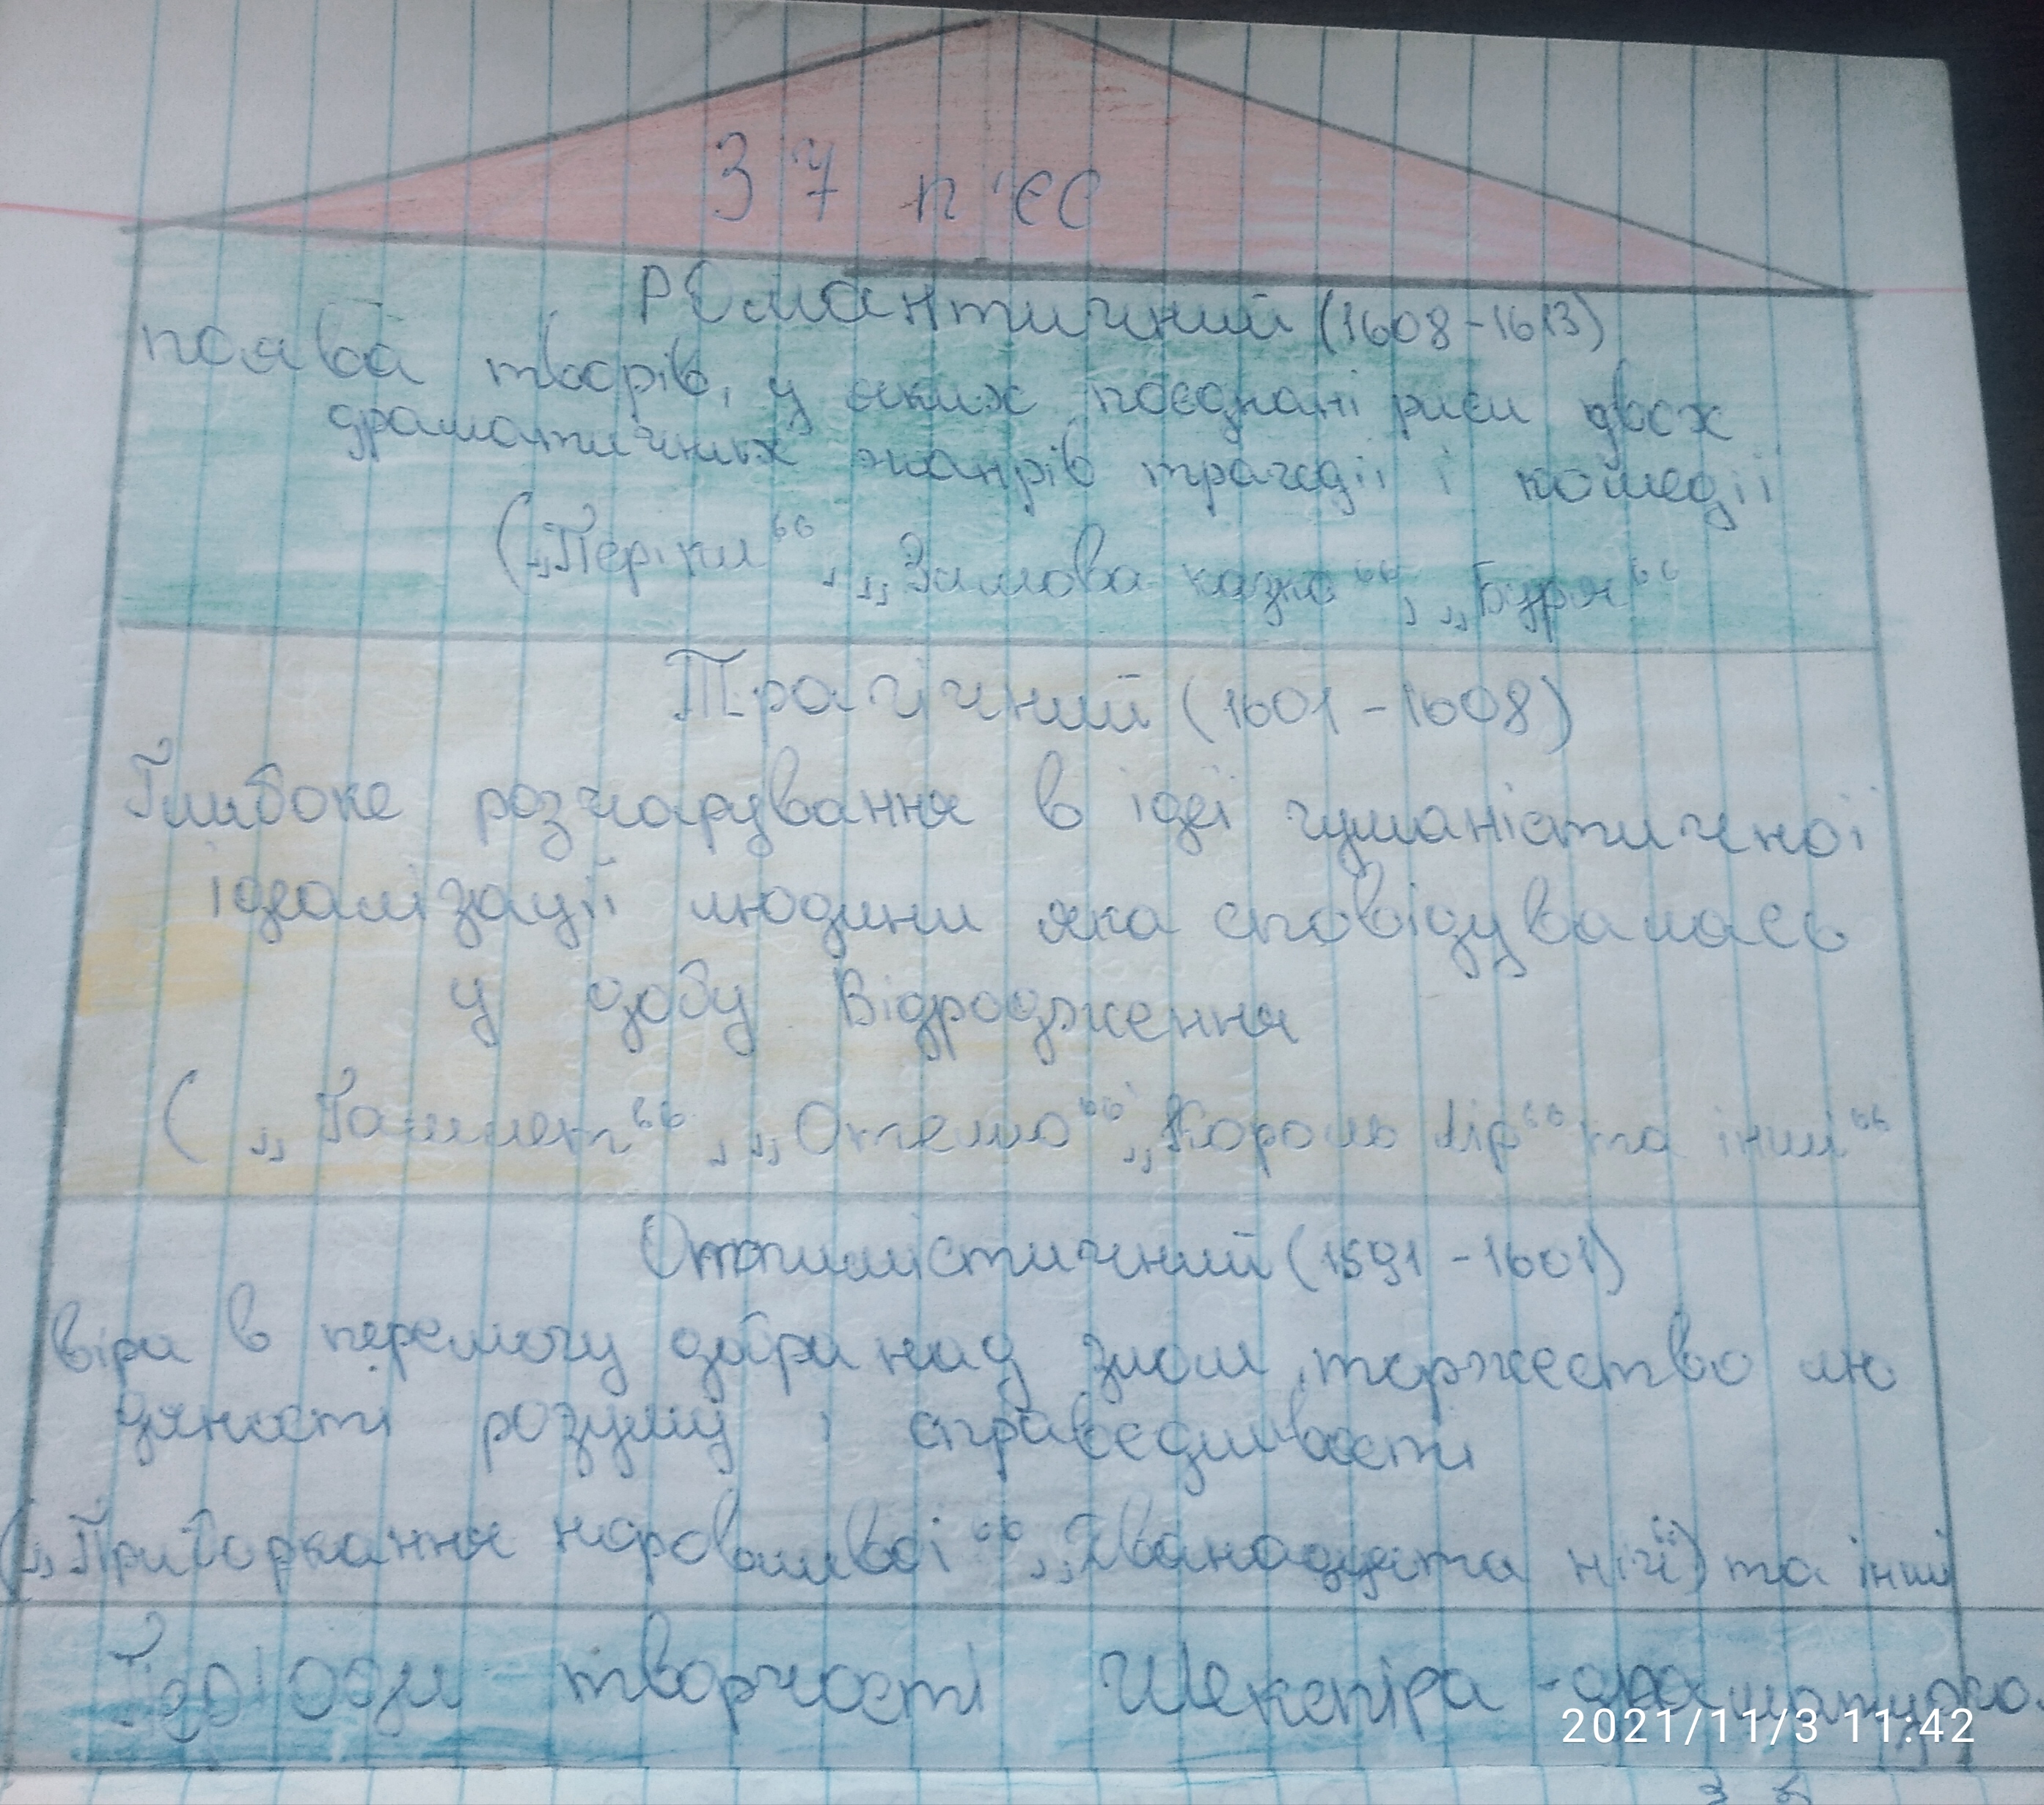 37 п'єс
Романтичний (1608-1613)
поява творів, у яких поєднані риси двох
драматичних жанрів трагедії і комедії
(„Перікл“, „Зимова казка“, „Буря“
Трагічний (1601-1608)
Глибоке розчарування в ідеї гуманістичної
ідеалізації людини яка сповідувалась
у добу Відродження
(„Гамлет“, „Отелло“ „Король Лір“ та інші“
Оптимістичний (1591-1601)
віра в перемогу добра над злом, торжество лю
дяності розуму і справедливості
(„Приборкання норовливої“, „Дванадцята ніч“) та інші
Періоди творчості Шекспіра -драматурга
2021/11/3 11:42